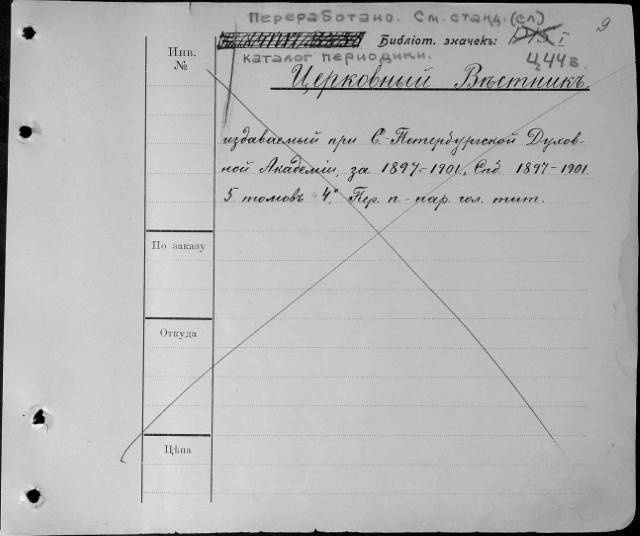 Переработано. См. станд. (сл)
9
Библіот. значекъ: I
каталог периодики.
Ц 44 в.
Инв. №
Церковный Вѣстникъ.
издаваемый при С-Петербургской Духов-
ной Академіи, за 1897-1901. Спб 1897-1901.
5 томовъ 4°. Пер. п.- пар. гол. тит.
По заказу
Откуда
Цѣна